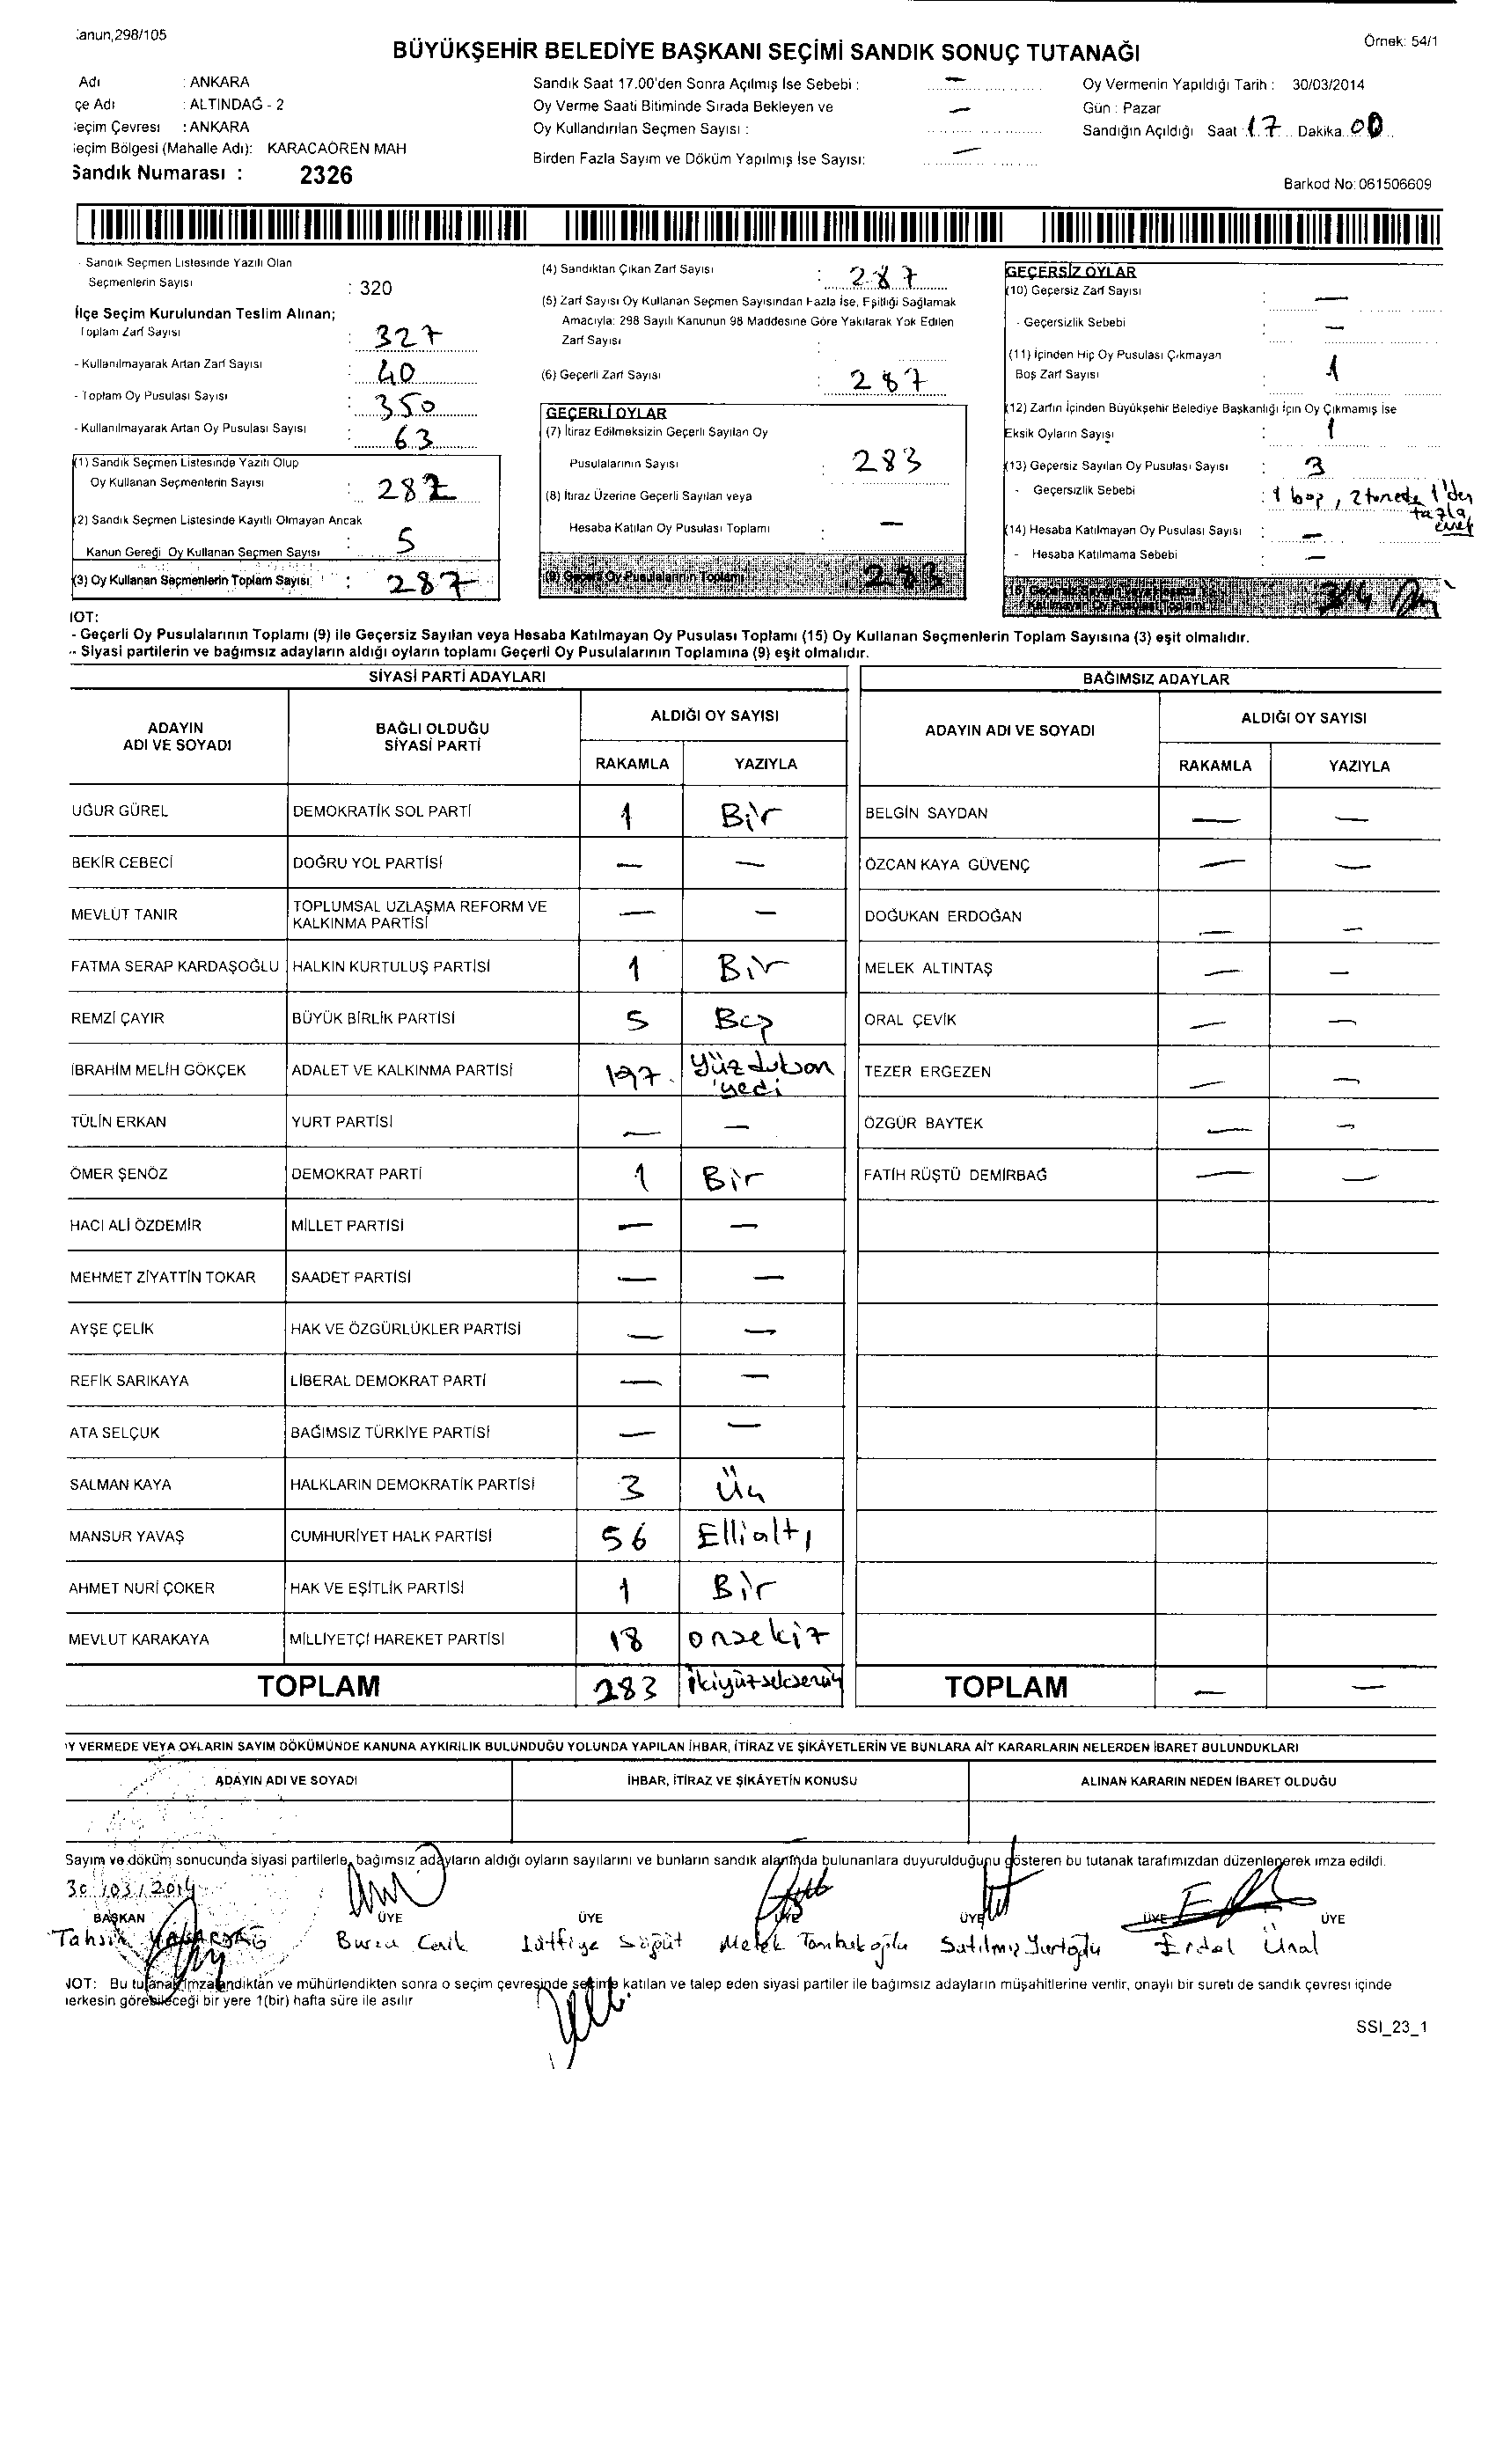 anun,298/105
Örnek: 54/1
BÜYÜKŞEHİR BELEDİYE BAŞKANI SEÇİMİ SANDIK SONUÇ TUTANAĞI
Adı : ANKARA
çe Adı : ALTINDAĞ - 2
eçim Çevresi : ANKARA
eçim Bölgesi (Mahalle Adı): KARACAÖREN MAH
Sandık Numarası : 2326
Sandık Saat 17.00'den Sonra Açılmış İse Sebebi : —
Oy Verme Saati Bitiminde Sırada Bekleyen ve
Oy Kullandırılan Seçmen Sayısı : —
Birden Fazla Sayım ve Döküm Yapılmış İse Sayısı: —
Oy Vermenin Yapıldığı Tarih : 30/03/2014
Gün : Pazar
Sandığın Açıldığı Saat : 17 Dakika 00
Barkod No: 061506609
- Sandık Seçmen Listesinde Yazılı Olan
Seçmenlerin Sayısı : 320
İlçe Seçim Kurulundan Teslim Alınan;
Toplam Zarf Sayısı : 327
- Kullanılmayarak Artan Zarf Sayısı : 40
- Toplam Oy Pusulası Sayısı : 350
- Kullanılmayarak Artan Oy Pusulası Sayısı : 63
(1) Sandık Seçmen Listesinde Yazılı Olup
Oy Kullanan Seçmenlerin Sayısı : 282
(2) Sandık Seçmen Listesinde Kayıtlı Olmayan Ancak
Kanun Gereği Oy Kullanan Seçmen Sayısı : 5
(3) Oy Kullanan Seçmenlerin Toplam Sayısı : 287
(4) Sandıktan Çıkan Zarf Sayısı : 287
(5) Zarf Sayısı Oy Kullanan Seçmen Sayısından Fazla İse, Eşitliği Sağlamak
Amacıyla: 298 Sayılı Kanunun 98 Maddesine Göre Yakılarak Yok Edilen
Zarf Sayısı :
(6) Geçerli Zarf Sayısı : 287
GEÇERLİ OYLAR
(7) İtiraz Edilmeksizin Geçerli Sayılan Oy
Pusulalarının Sayısı : 283
(8) İtiraz Üzerine Geçerli Sayılan veya
Hesaba Katılan Oy Pusulası Toplamı : —
(9) Geçerli Oy Pusulalarının Toplamı 283
GEÇERSİZ OYLAR
(10) Geçersiz Zarf Sayısı : —
- Geçersizlik Sebebi : —
(11) İçinden Hiç Oy Pusulası Çıkmayan
Boş Zarf Sayısı : 1
(12) Zarfın İçinden Büyükşehir Belediye Başkanlığı İçin Oy Çıkmamış İse
Eksik Oyların Sayısı : 1
(13) Geçersiz Sayılan Oy Pusulası Sayısı : 3
- Geçersizlik Sebebi : 1 boş, 2 tanede 1'den
fazla
evet
(14) Hesaba Katılmayan Oy Pusulası Sayısı : —
- Hesaba Katılmama Sebebi : —
(15) Geçersiz Sayılan veya Hesaba
Katılmayan Oy Pusulası Toplamı 3/4
NOT:
- Geçerli Oy Pusulalarının Toplamı (9) ile Geçersiz Sayılan veya Hesaba Katılmayan Oy Pusulası Toplamı (15) Oy Kullanan Seçmenlerin Toplam Sayısına (3) eşit olmalıdır.
- Siyasi partilerin ve bağımsız adayların aldığı oyların toplamı Geçerli Oy Pusulalarının Toplamına (9) eşit olmalıdır.
SİYASİ PARTİ ADAYLARI
BAĞIMSIZ ADAYLAR
ADAYIN ADI VE SOYADI
BAĞLI OLDUĞU SİYASİ PARTİ
ALDIĞI OY SAYISI
RAKAMLA YAZIYLA
ADAYIN ADI VE SOYADI
ALDIĞI OY SAYISI
RAKAMLA YAZIYLA
UĞUR GÜREL DEMOKRATİK SOL PARTİ 1 Bir BELGİN SAYDAN — —
BEKİR CEBECİ DOĞRU YOL PARTİSİ — — ÖZCAN KAYA GÜVENÇ — —
MEVLÜT TANIR TOPLUMSAL UZLAŞMA REFORM VE KALKINMA PARTİSİ — — DOĞUKAN ERDOĞAN — —
FATMA SERAP KARDAŞOĞLU HALKIN KURTULUŞ PARTİSİ 1 Bir MELEK ALTINTAŞ — —
REMZİ ÇAYIR BÜYÜK BİRLİK PARTİSİ 5 Beş ORAL ÇEVİK — —
İBRAHİM MELİH GÖKÇEK ADALET VE KALKINMA PARTİSİ 197 yüzdokson yedi TEZER ERGEZEN — —
TÜLİN ERKAN YURT PARTİSİ — — ÖZGÜR BAYTEK — —
ÖMER ŞENÖZ DEMOKRAT PARTİ 1 Bir FATİH RÜŞTÜ DEMİRBAĞ — —
HACI ALİ ÖZDEMİR MİLLET PARTİSİ — —
MEHMET ZİYATTİN TOKAR SAADET PARTİSİ — —
AYŞE ÇELİK HAK VE ÖZGÜRLÜKLER PARTİSİ — —
REFİK SARIKAYA LİBERAL DEMOKRAT PARTİ — —
ATA SELÇUK BAĞIMSIZ TÜRKİYE PARTİSİ — —
SALMAN KAYA HALKLARIN DEMOKRATİK PARTİSİ 3 Üç
MANSUR YAVAŞ CUMHURİYET HALK PARTİSİ 56 Ellialtı
AHMET NURİ ÇOKER HAK VE EŞİTLİK PARTİSİ 1 Bir
MEVLUT KARAKAYA MİLLİYETÇİ HAREKET PARTİSİ 18 onsekiz
TOPLAM 283 ikiyüzseksenüç TOPLAM — —
Y VERMEDE VEYA OYLARIN SAYIM DÖKÜMÜNDE KANUNA AYKIRILIK BULUNDUĞU YOLUNDA YAPILAN İHBAR, İTİRAZ VE ŞİKÂYETLERİN VE BUNLARA AİT KARARLARIN NELERDEN İBARET BULUNDUKLARI
ADAYIN ADI VE SOYADI İHBAR, İTİRAZ VE ŞİKÂYETİN KONUSU ALINAN KARARIN NEDEN İBARET OLDUĞU
Sayım ve döküm sonucunda siyasi partilerle, bağımsız adayların aldığı oyların sayılarını ve bunların sandık alanında bulunanlara duyurulduğunu gösteren bu tutanak tarafımızdan düzenlenerek imza edildi.
30/03/2014
BAŞKAN ÜYE ÜYE ÜYE ÜYE ÜYE ÜYE
Tahsin Burcu Lütfiye Söğüt Melek Satılmış Yurtoğlu Erdal Ünal
NOT: Bu tutanak imzalandıktan ve mühürlendikten sonra o seçim çevresinde seçime katılan ve talep eden siyasi partiler ile bağımsız adayların müşahitlerine verilir, onaylı bir sureti de sandık çevresi içinde
herkesin görebileceği bir yere 1(bir) hafta süre ile asılır
SSI_23_1